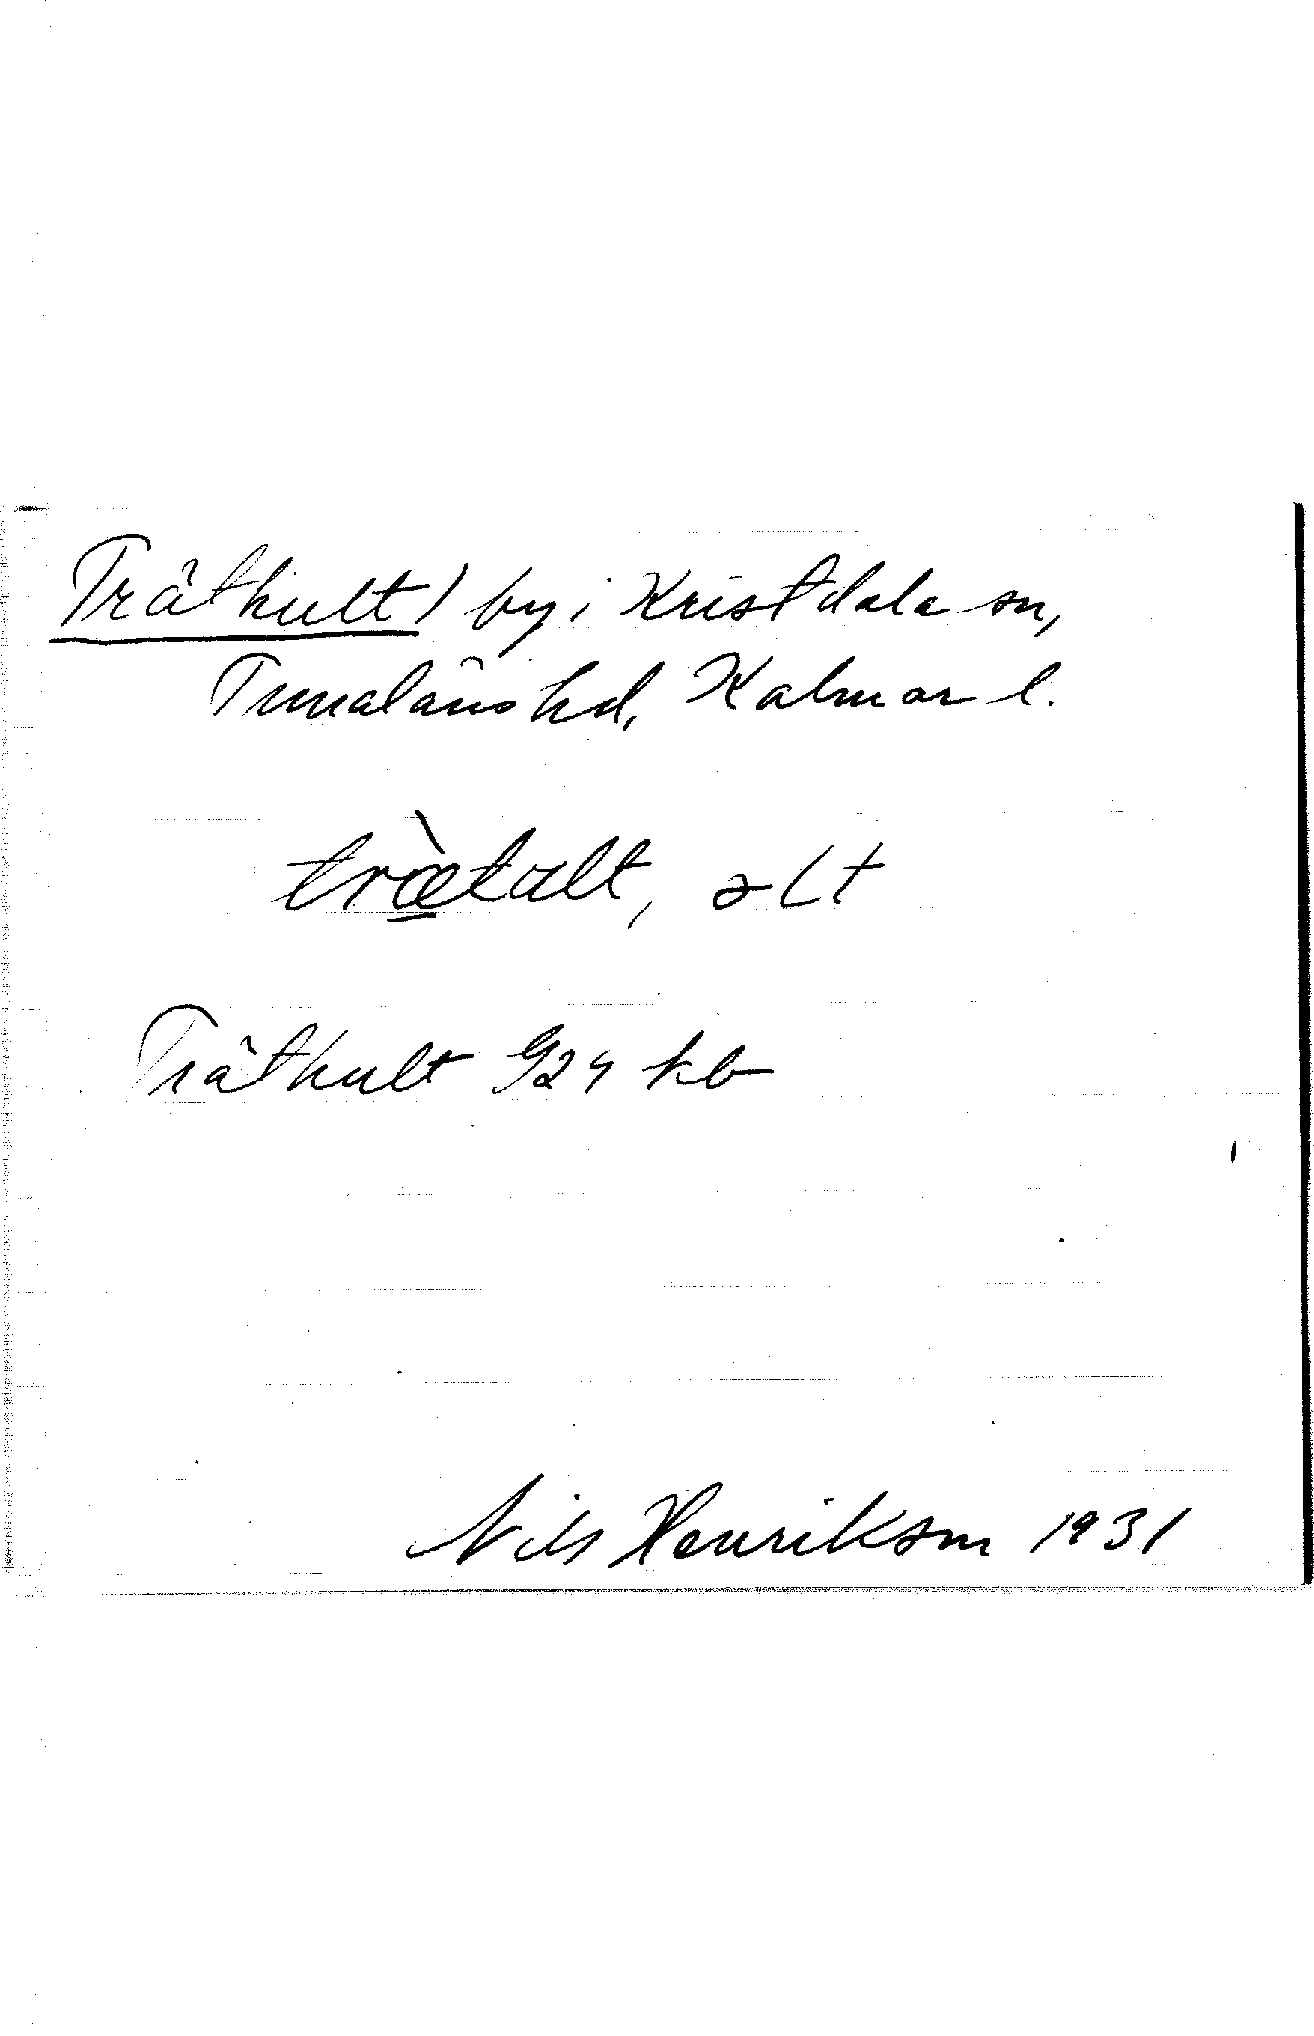 Trathult) by i Kristdala sn,
Tunaläns hd, Kalmar l.
træ̀talt, alt
Träthult G24 kb
Nils Henrikson 1931